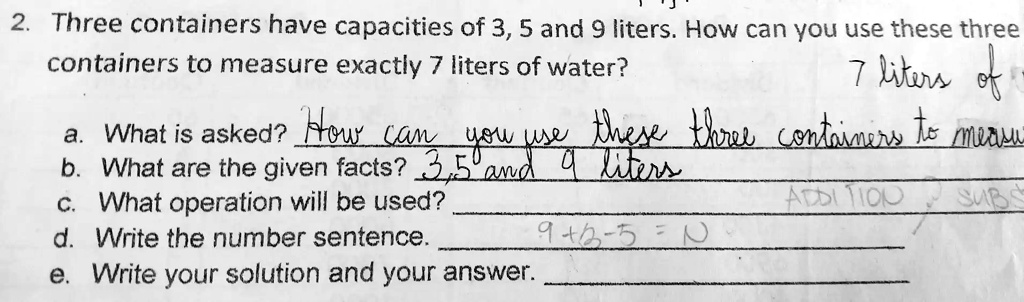 2. Three containers have capacities of 3, 5 and 9 liters. How can you use these three
containers to measure exactly 7 liters of water?
7 liters of
a. What is asked? How can you use these three containers to measu
b. What are the given facts? 3,5 and 9 liters
c. What operation will be used? ADDITION , SUBS
d. Write the number sentence. 9+3-5 = N
e. Write your solution and your answer.